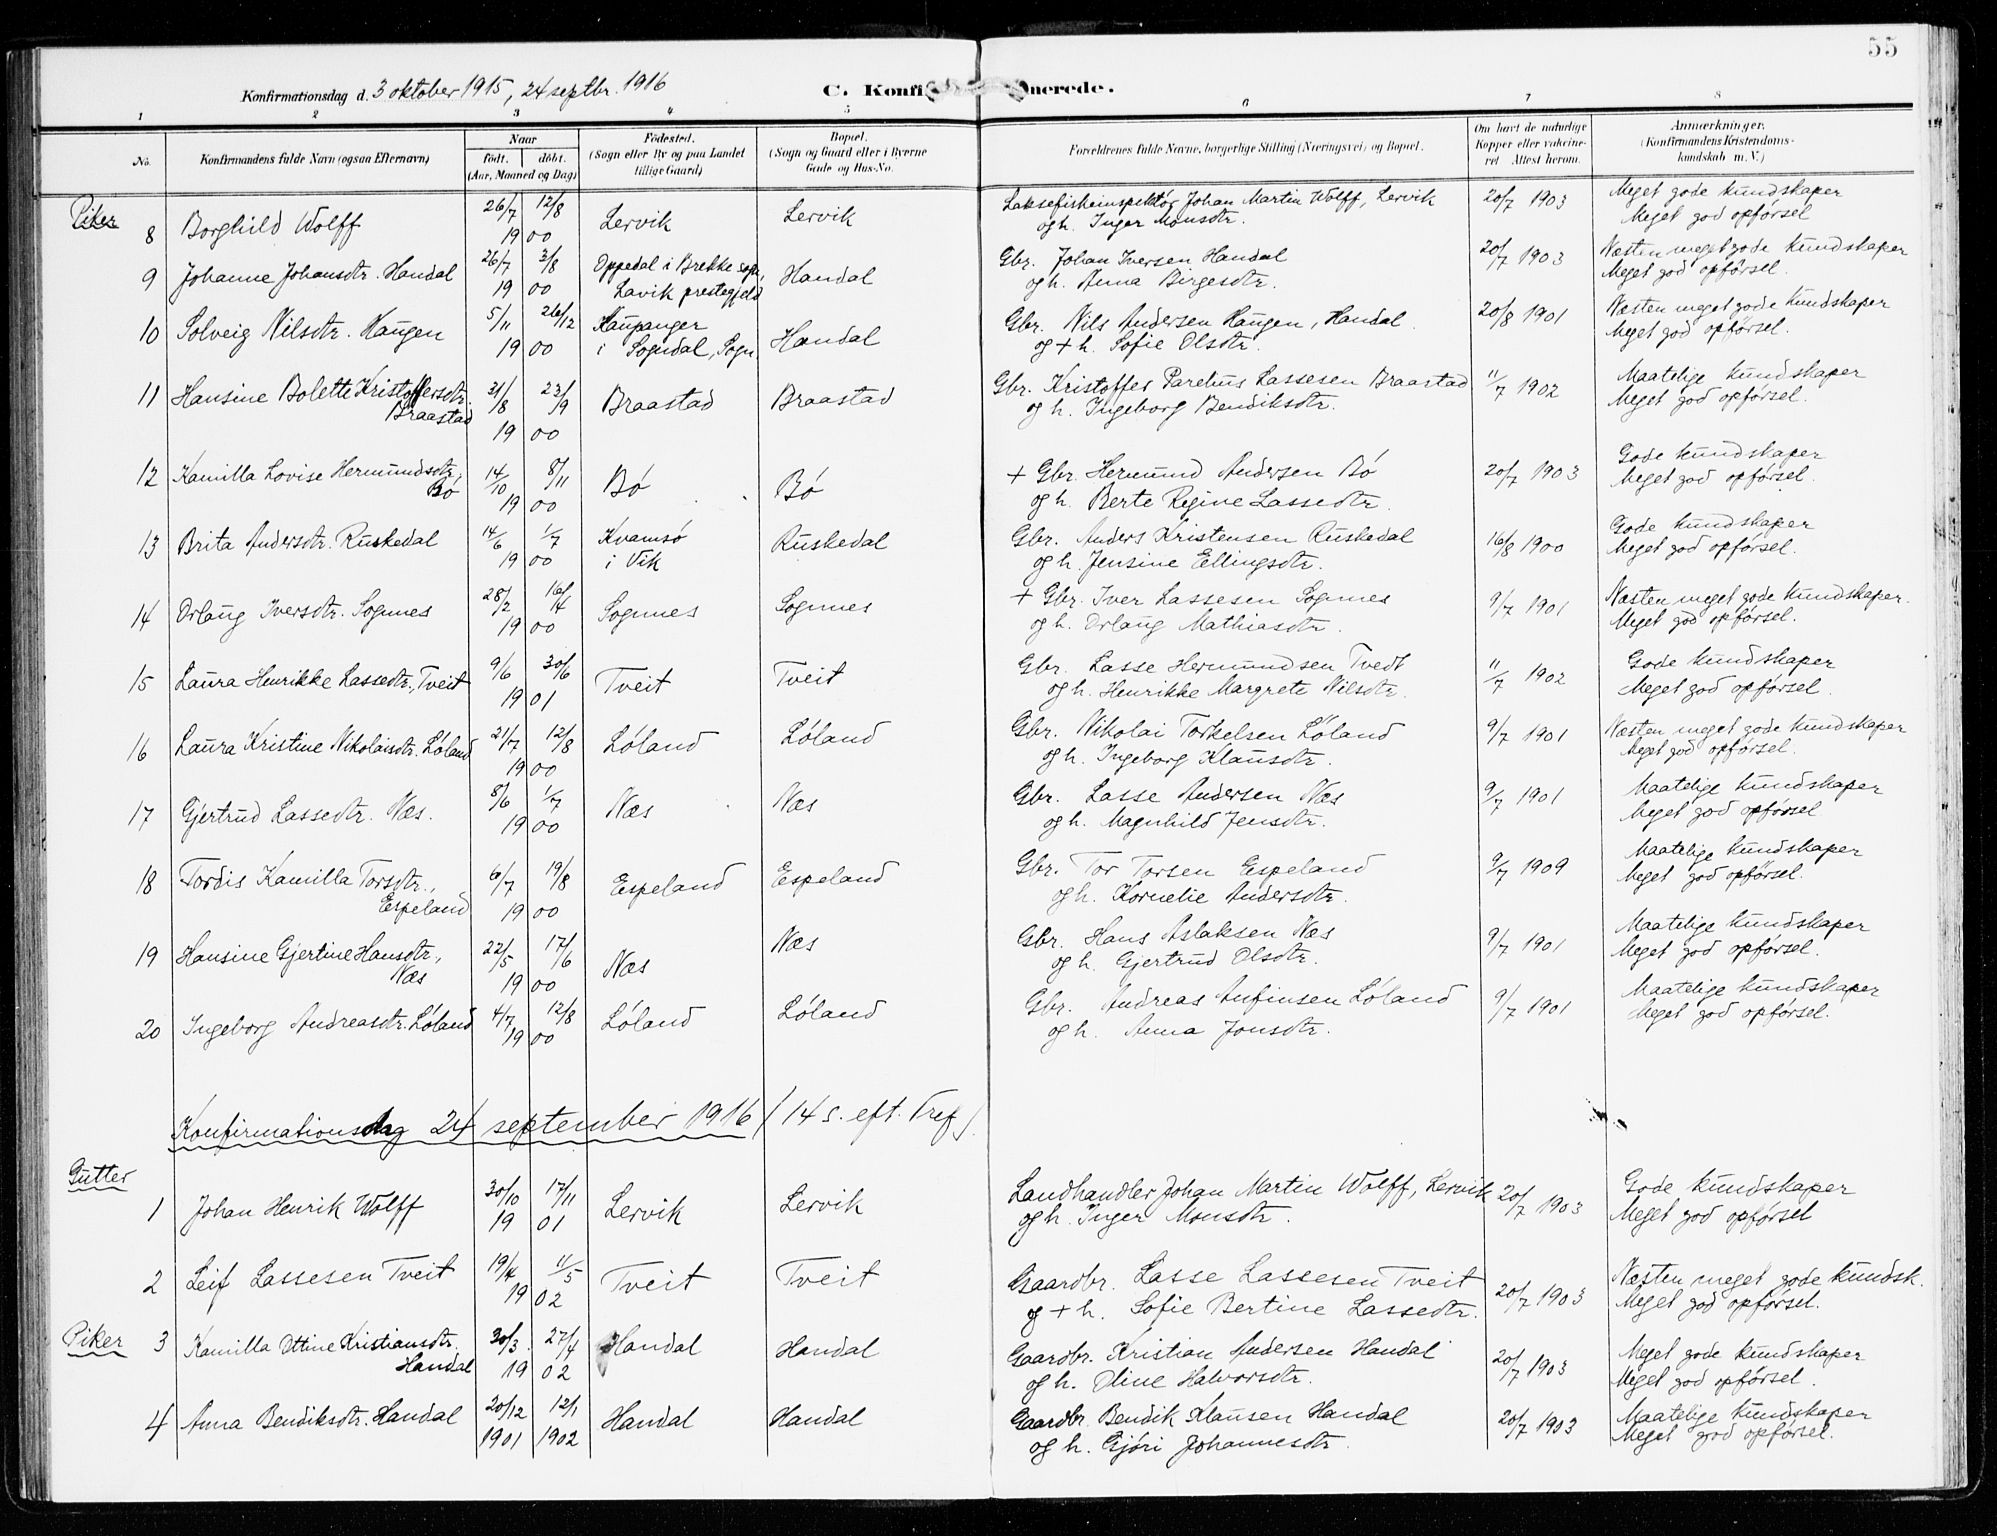 55
Konfirmationsdag d. 3 oktober 1915, 24 septbr. 1916
C. Konfi nerede.
1 2 3 4 5 6 7 8
No. Konfirmandens fulde Navn (ogsaa Efternavn) Naar født. døbt. (Aar, Maaned og Dag) Fødested. (Sogn eller By og paa Landet tillige Gaard) Bopæl. (Sogn og Gaard eller i Byerne Gade og Hus-No. Forældrenes fulde Navne, borgerlige Stilling (Næringsvei) og Bopæl. Om havt de naturlige Kopper eller vakcineret Attest herom. Anmærkninger. (Konfirmandens Kristendomskundskab m. V.)
Piker
8 Borghild Wolff 26/7 12/8 1900 Lervik Lervik Laksefiskeinspektør Johan Martin Wolff, Lervik 20/7 1903 Meget gode kundskaper
og h. Inger Monsdtr. Meget god opførsel
9 Johanne Johansdtr. Handal 26/7 3/8 1900 Oppedal i Brekke sogn, Lavik prestegjeld Handal Gbr. Johan Iversen Handal 20/7 1903 Næsten meget gode kundskaper
og h. Anna Birgesdtr. Meget god opførsel.
10 Solveig Nilsdtr. Haugen 5/11 26/12 1900 Kaupanger i Sogndal, Sogn Handal Gbr. Nils Andersen Haugen, Handal. 20/8 1901 Næsten meget gode kundskaper
og + h. Sofie Olsdtr. Meget god opførsel.
11 Hansine Bolette Kristoffersdtr. Braastad 31/8 23/9 1900 Braastad Braastad Gbr. Kristoffer Parelius Lassesen Braastad 11/7 1902 Maatelige kundskaper
og h. Ingeborg Bendiksdtr. Meget god opførsel.
12 Kamilla Lovise Hermundsdtr., Bø 14/10 8/11 1900 Bø Bø + Gbr. Hermund Andersen Bø 20/7 1903 Gode kundskaper
og h. Berte Regine Lassedtr. Meget god opførsel.
13 Brita Andersdtr. Ruskedal 14/6 1/7 1900 Kvamsø i Vik Ruskedal Gbr. Anders Kristensen Ruskedal 16/8 1900 Gode kundskaper
og h. Jensine Ellingsdtr. Meget god opførsel.
14 Orlaug Iversdtr. Sognnes 28/2 16/4 1900 Sognnes Sognnes + Gbr. Iver Lassesen Sognnes 9/7 1901 Næsten meget gode kundskaper.
og h. Orlaug Mathiasdtr. Meget god opførsel.
15 Laura Henrikke Lassedtr., Tveit 9/6 30/6 1901 Tveit Tveit Gbr. Lasse Hermundsen Tvedt 11/7 1902 Gode kundskaper
og h. Henrikke Margrete Nilsdtr. Meget god opførsel.
16 Laura Kristine Nikolaisdtr. Løland 21/7 12/8 1900 Løland Løland Gbr. Nikolai Torkelsen Løland 9/7 1901 Næsten meget gode kundskaper
og h. Ingeborg Klausdtr. Meget god opførsel.
17 Gjertrud Lassedtr. Næs. 8/6 1/7 1900 Næs Næs Gbr. Lasse Andersen Næs 9/7 1901 Maatelige kundskaper
og h. Magnhild Jensdtr. Meget god opførsel
18 Tordis Kamilla Torsdtr., Espeland 6/7 19/8 1900 Espeland Espeland Gbr. Tor Torsen Espeland 9/7 1909 Maatelige kundskaper
og h. Kornelie Andersdtr. Meget god opførsel.
19 Hansine Gjertine Hansdtr., Næs 22/5 17/6 1900 Næs Næs Gbr. Hans Aslaksen Næs 9/7 1901 Maatelige kundskaper
og h. Gjertrud Olsdtr. Meget god opførsel.
20 Ingeborg Andreasdtr. Løland 4/7 12/8 1900 Løland Løland Gbr. Andreas Anfinsen Løland 9/7 1901 Maatelige kundskaper
og h. Anna Jonsdtr. Meget god opførsel.
Konfirmationsdag 24 september 1916 (14 s. eft. Tref.)
Gutter
1 Johan Henrik Wolff 30/10 17/11 1901 Lervik Lervik Landhandler Johan Martin Wolff, Lervik 20/7 1903 Gode kundskaper
og h. Inger Monsdtr. Meget god opførsel
2 Leif Lassesen Tveit 19/4 11/5 1902 Tveit Tveit Gaardbr. Lasse Lassesen Tveit 20/7 1903 Næsten meget gode kundsk.
og + h. Sofie Bertine Lassedtr. Meget god opførsel.
Piker
3 Kamilla Otine Kristiansdtr. Handal 30/3 27/4 1902 Handal Handal Gaardbr. Kristian Andersen Handal 20/7 1903 Meget gode kundskaper
og h. Oline Halvorsdtr. Meget god opførsel.
4 Anna Bendiksdtr. Handal 20/12 1901 12/1 1902 Handal Handal Gaardbr. Bendik Klausen Handal 20/7 1903 Maatelige kundskaper
og h. Gjøri Johannesdtr. Meget god opførsel.